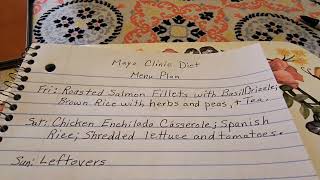 Mayo Clinic Diet
Menu Plan
Fri: Roasted Salmon Fillets with Basil Drizzle;
Brown Rice with herbs and peas, + Tea.
Sat: Chicken Enchilada Casserole; Spanish
Rice; Shredded lettuce and tomatoes.
Sun: Leftovers